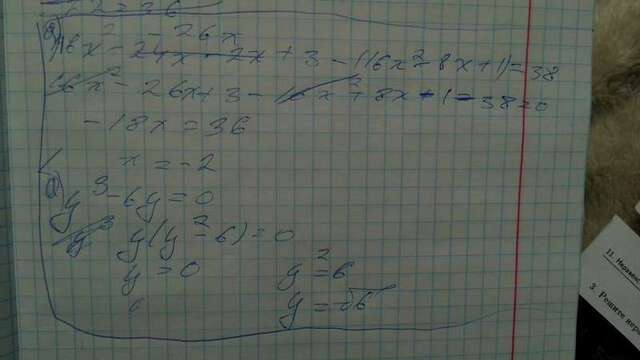 - 26x
б) 16x² - 24x - 2x + 3 - (16x² - 8x + 1) = 38
16x² - 26x + 3 - 16x² + 8x - 1 - 38 = 0
- 18x = 36
x = -2
y³ - 6y = 0
y(y² - 6) = 0
y = 0 y² = 6
y = √6
11. Незамен
3. Решите нера